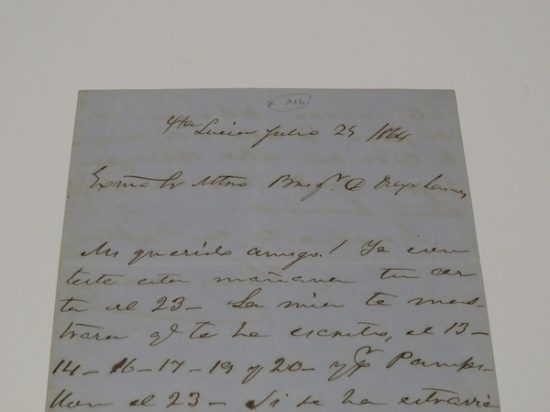 116
Sta Lucia Julio 25 1864
Exmo Sr Mtro Brig.r D
Mi querido amigo! Ya con
teste esta mañana tu car
ta del 23 - La mia te mos-
trara q.e te he escrito, el 13-
14-16-17-19 y 20- y p.r Pamp-
llon el 23- Si se ha estravia